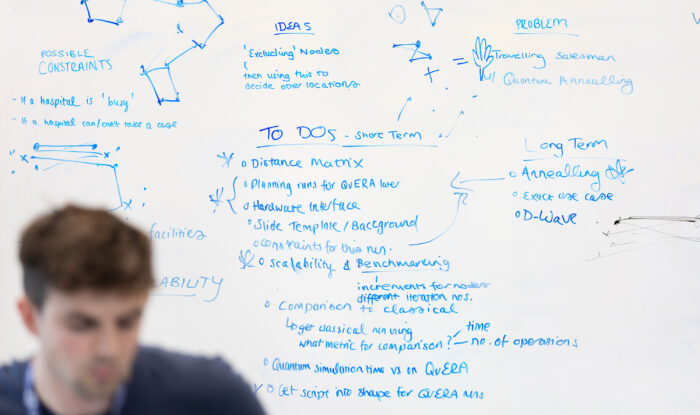 IDEAS
'Excluding' Nodes
then using this to
decide other locations
PROBLEM
Travelling Salesman
w/ Quantum Annealling
+ =
POSSIBLE
CONSTRAINTS
- If a hospital is 'busy'
- If a hospital can/cont take a case
facilities
ABILITY
TO DOS - Short Term
Distance Matrix
Planning runs for QuERA later
Hardware Interface
Slide Template / Background
Constraints for this run.
Scalability & Benchmarking
increments for nodes
different iteration nos.
Comparison to classical
get classical running
what metric for comparison? time
no. of operations
Quantum simulation time vs on QuERA
Get script into shape for QUERA runs
Long Term
Annealling
Exact use case
D-Wave